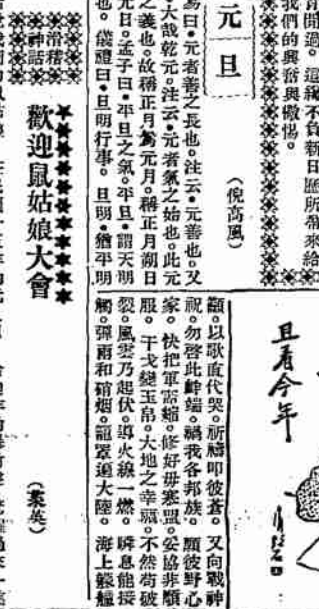 開過。這纔不負新日所帶來給
我們的興奮與
元旦
(倪高風)
易曰。元者善之長也。注云。元善也。又
大哉乾元。注云。元者氣之始也。此元
之義也。故稱正月爲元月。稱正月朔日
元日。孟子曰。平旦之氣。平旦。謂天明
也。儀禮曰。旦明行事。旦明。猶平明
且看今年
顫。以歌直代哭。祈禱叩彼蒼。又向戰神
祝。勿啓此衅端。禍我各邦族。願彼野心
家。快把軍備縮。修好毋寒盟。妥協非順
服。干戈變玉帛。大地之幸福。不然苟破
裂。風雲乃起伏。導火線一燃。瞬息能接
觸。彈雨和硝烟。籠罩遍大陸。海上艨艟
滑稽
神話
歡迎鼠姑娘大會
(葉英)